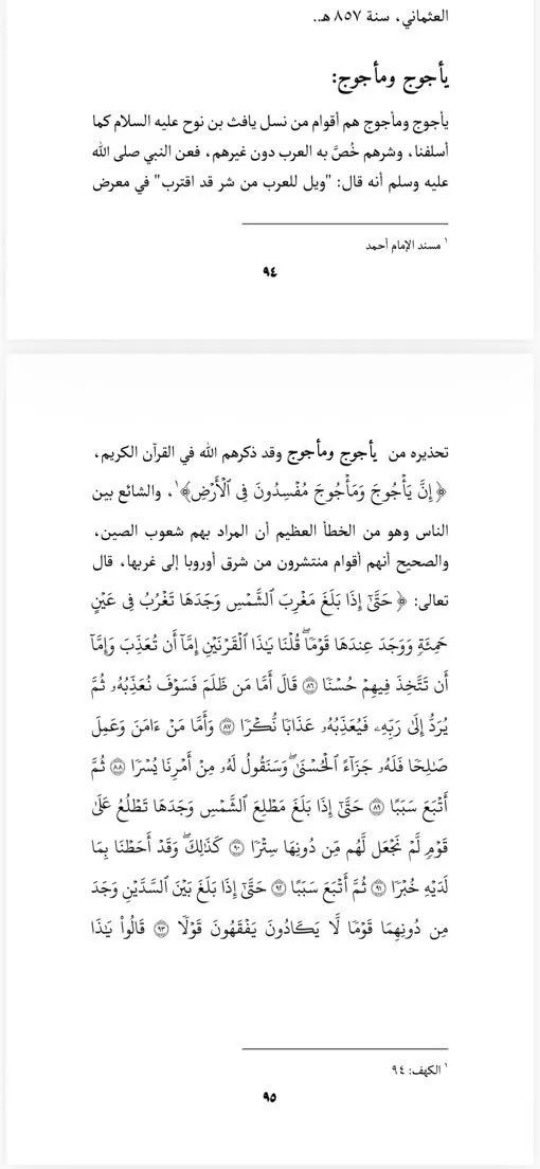 العثماني، سنة ٨٥٧ هـ..
يأجوج ومأجوج:
يأجوج ومأجوج هم أقوام من نسل يافث بن نوح عليه السلام كما
أسلفنا، وشرهم خُصَّ به العرب دون غيرهم، فعن النبي صلى الله
عليه وسلم أنه قال: "ويل للعرب من شر قد اقترب" في معرض
١ مسند الإمام أحمد
٩٤
تحذيره من يأجوج ومأجوج وقد ذكرهم الله في القرآن الكريم،
﴿إِنَّ يَأْجُوجَ وَمَأْجُوجَ مُفْسِدُونَ فِي ٱلْأَرْضِ﴾١، والشائع بين
الناس وهو من الخطأ العظيم أن المراد بهم شعوب الصين،
والصحيح أنهم أقوام منتشرون من شرق أوروبا إلى غربها، قال
تعالى: ﴿ حَتَّىٰٓ إِذَا بَلَغَ مَغْرِبَ ٱلشَّمْسِ وَجَدَهَا تَغْرُبُ فِي عَيْنٍ
حَمِئَةٍ وَوَجَدَ عِندَهَا قَوْمًاۗ قُلْنَا يَٰذَا ٱلْقَرْنَيْنِ إِمَّآ أَن تُعَذِّبَ وَإِمَّآ
أَن تَتَّخِذَ فِيهِمْ حُسْنًا ۝٨٦ قَالَ أَمَّا مَن ظَلَمَ فَسَوْفَ نُعَذِّبُهُۥ ثُمَّ
يُرَدُّ إِلَىٰ رَبِّهِۦ فَيُعَذِّبُهُۥ عَذَابًا نُّكْرًا ۝٨٧ وَأَمَّا مَنْ ءَامَنَ وَعَمِلَ
صَٰلِحًا فَلَهُۥ جَزَآءً ٱلْحُسْنَىٰۖ وَسَنَقُولُ لَهُۥ مِنْ أَمْرِنَا يُسْرًا ۝٨٨ ثُمَّ
أَتْبَعَ سَبَبًا ۝٨٩ حَتَّىٰٓ إِذَا بَلَغَ مَطْلِعَ ٱلشَّمْسِ وَجَدَهَا تَطْلُعُ عَلَىٰ
قَوْمٍ لَّمْ نَجْعَل لَّهُم مِّن دُونِهَا سِتْرًا ۝٩٠ كَذَٰلِكَۖ وَقَدْ أَحَطْنَا بِمَا
لَدَيْهِ خُبْرًا ۝٩١ ثُمَّ أَتْبَعَ سَبَبًا ۝٩٢ حَتَّىٰٓ إِذَا بَلَغَ بَيْنَ ٱلسَّدَّيْنِ وَجَدَ
مِن دُونِهِمَا قَوْمًا لَّا يَكَادُونَ يَفْقَهُونَ قَوْلًا ۝٩٣ قَالُوا۟ يَٰذَا
١ الكهف: ٩٤
٩٥